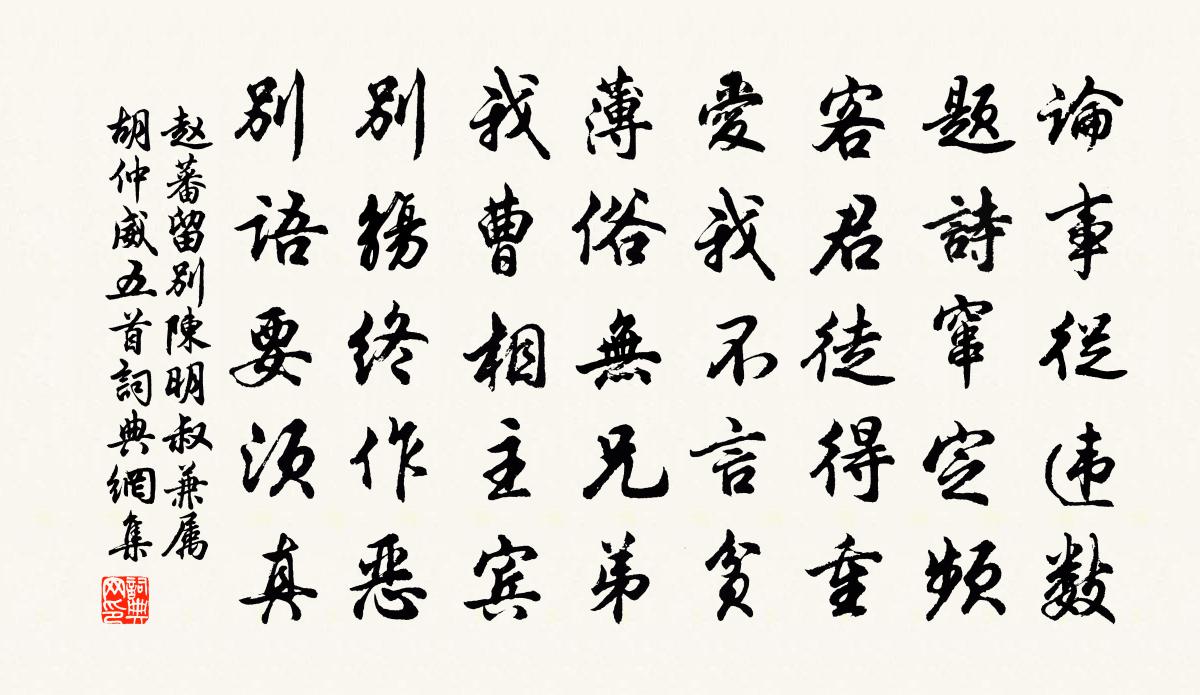 論事從违数
題詩窜定頻
客君徒得重
愛我不言貧
薄俗無兄弟
我曹相主宾
別觴终作恶
別语要须真
赵蕃留别陳明叔兼属
胡仲威五首詞典網集
詞典網印